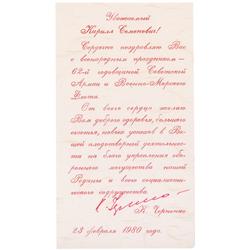 Уважаемый
Кирилл Семенович!
Сердечно поздравляю Вас
с всенародным праздником —
62-й годовщиной Советской
Армии и Военно-Морского
Флота.
От всего сердца желаю
Вам доброго здоровья, большого
счастья, новых успехов в Вашей
плодотворной деятельности
на благо укрепления оборонного
могущества нашей
Родины и всего социалистического
содружества.
К. Черненко
23 февраля 1980 года.